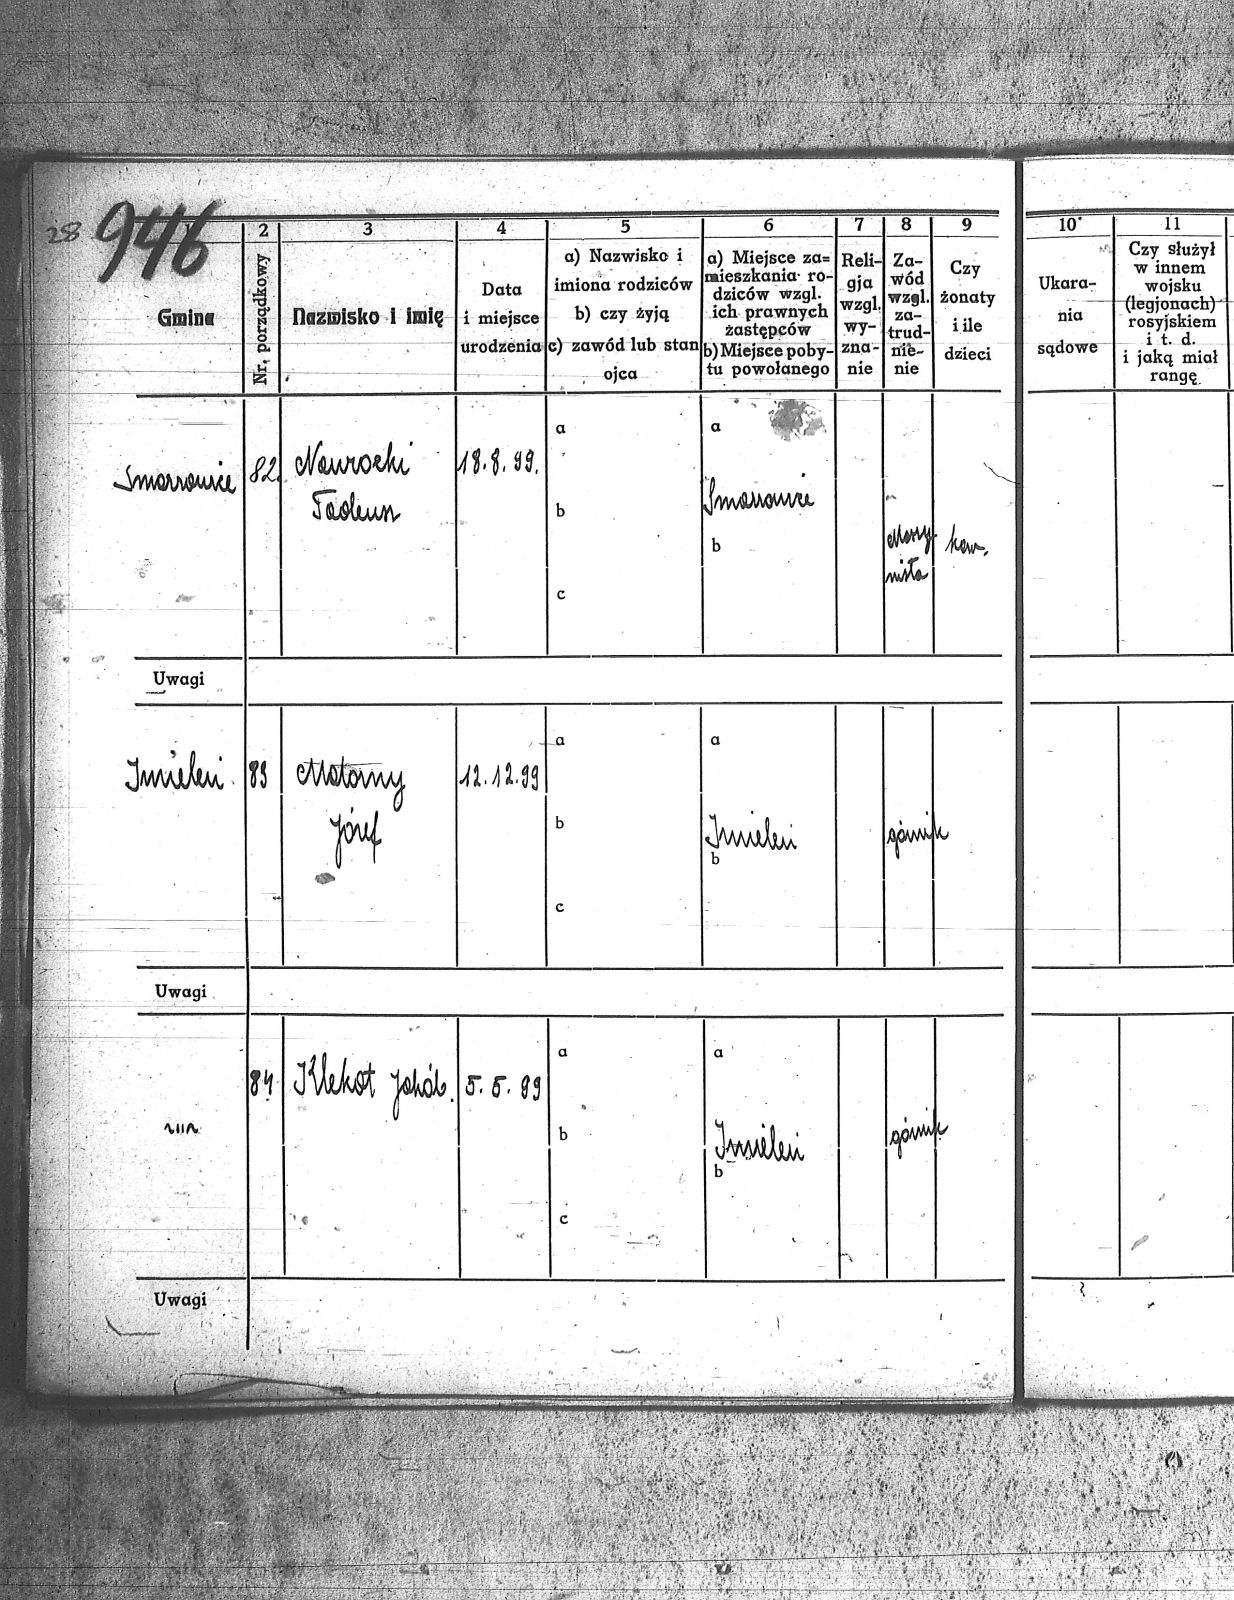 28 946
2 3 4 5 6 7 8 9 10 11
Gmina
Nr. porządkowy
Nazwisko i imię
Data
i miejsce
urodzenia
a) Nazwisko i
imiona rodziców
b) czy żyją
c) zawód lub stan
ojca
a) Miejsce za=
mieszkania ro-
dziców wzgl.
ich prawnych
żastępców
b) Miejsce poby-
tu powołanego
Reli-
gja
wzgl.
wy-
zna-
nie
Za-
wód
wzgl.
za-
trud-
nie-
nie
Czy
żonaty
i ile
dzieci
Ukara-
nia
sądowe
Czy służył
w innem
wojsku
(legjonach)
rosyjskiem
i t. d.
i jaką miał
rangę
82. Nawrocki
Tadeusz
18.8.99.
a
b
c
a
b
kaw.
Uwagi
Imieleń 83 Matorny
Józef
12.12.99
a
b
c
a
Imieleń
b
górnik
Uwagi
84 Klekot Jakób. 5.5.99
a
b
c
a
Imieleń
b
górnik
Uwagi